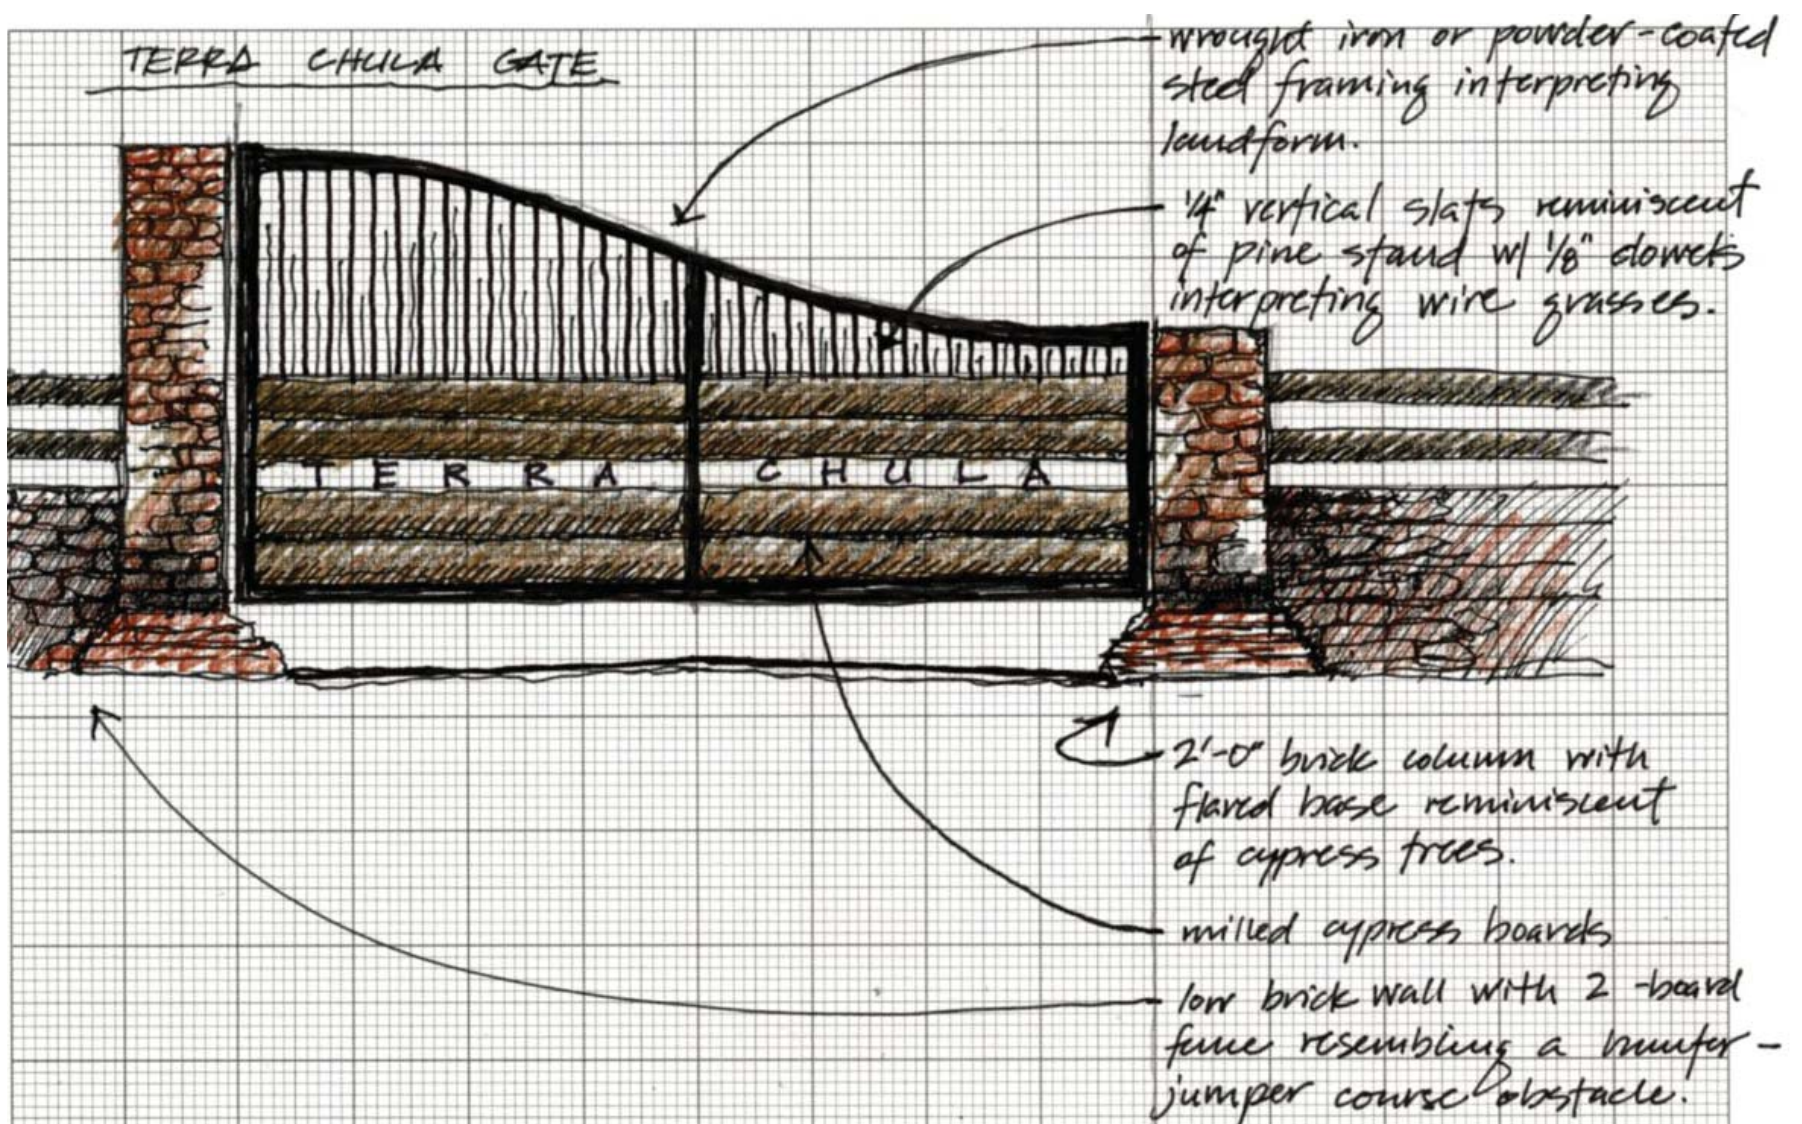 TERRA CHULA GATE
wrought iron or powder-coated
steel framing interpreting
landform.
1/4" vertical slats reminiscent
of pine stand w/ 1/8" dowels
interpreting wire grasses.
TERRA CHULA
2'-0" brick column with
flared base reminiscent
of cypress trees.
milled cypress boards
low brick wall with 2-board
fence resembling a hunter-
jumper course obstacle.